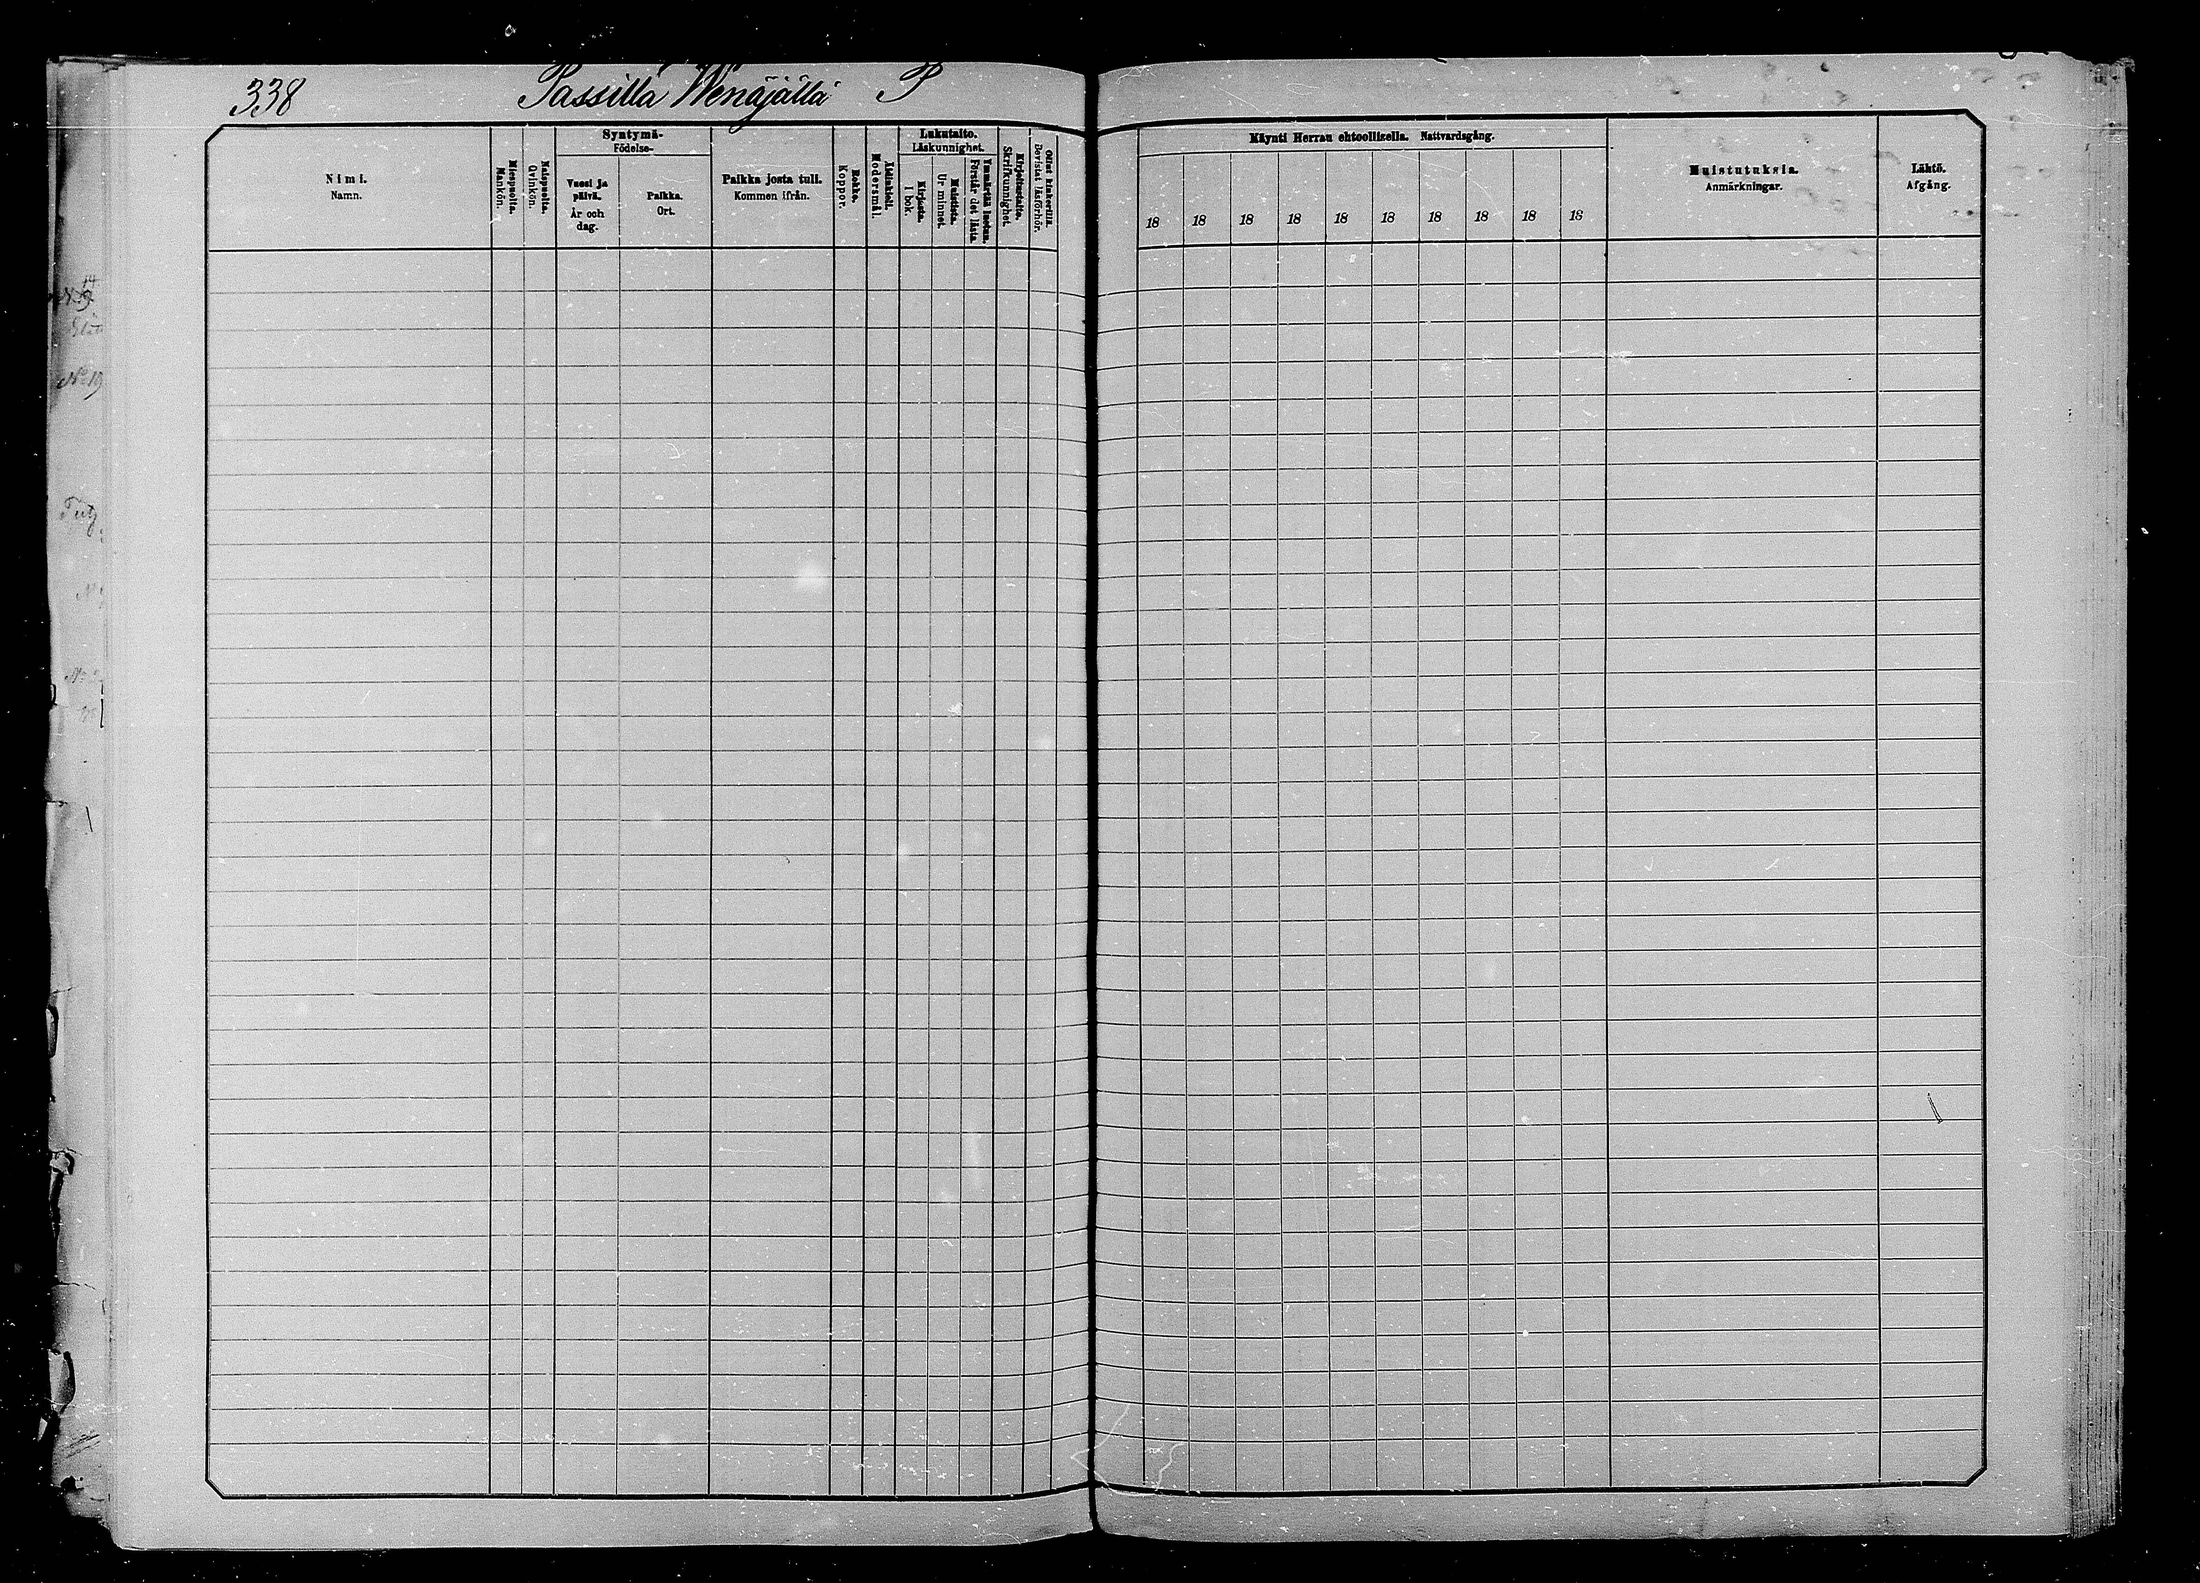 338 Passilla Wenäjällä P
Nimi.
Namn.
Miespuolia.
Mankön.
Naispuolia.
Qvinkön.
Syntymä-
Födelse-
Vuosi ja
päivä.
År och
dag.
Paikka.
Ort.
Paikka josta tuli.
Kommen ifrån.
Rokko.
Koppor.
Äidinkieli.
Modersmål.
Lukutaito.
Läskunnighet.
Kirjasta.
I bok.
Muistista.
Ur minnet.
Ymmärtää luetun.
Förstår det lästa.
Kirjoitustaito.
Skrifkunnighet.
Ollut kinkerillä.
Bevistat läsförhör.
Käynti Herran ehtoollisella. Nattvardsgång.
18 18 18 18 18 18 18 18 18 18
Muistutuksia.
Anmärkningar.
Lähtö.
Afgång.